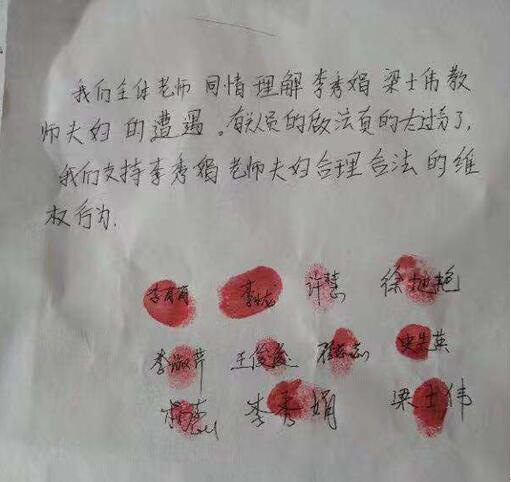 我们全体老师同情理解李秀娟梁士伟教
师夫妇的遭遇。有关人员的做法真的太过分了,
我们支持李秀娟老师夫妇合理合法的维
权行为.
许慧 徐旭艳
李淑芹 王俊
李秀娟 梁士伟